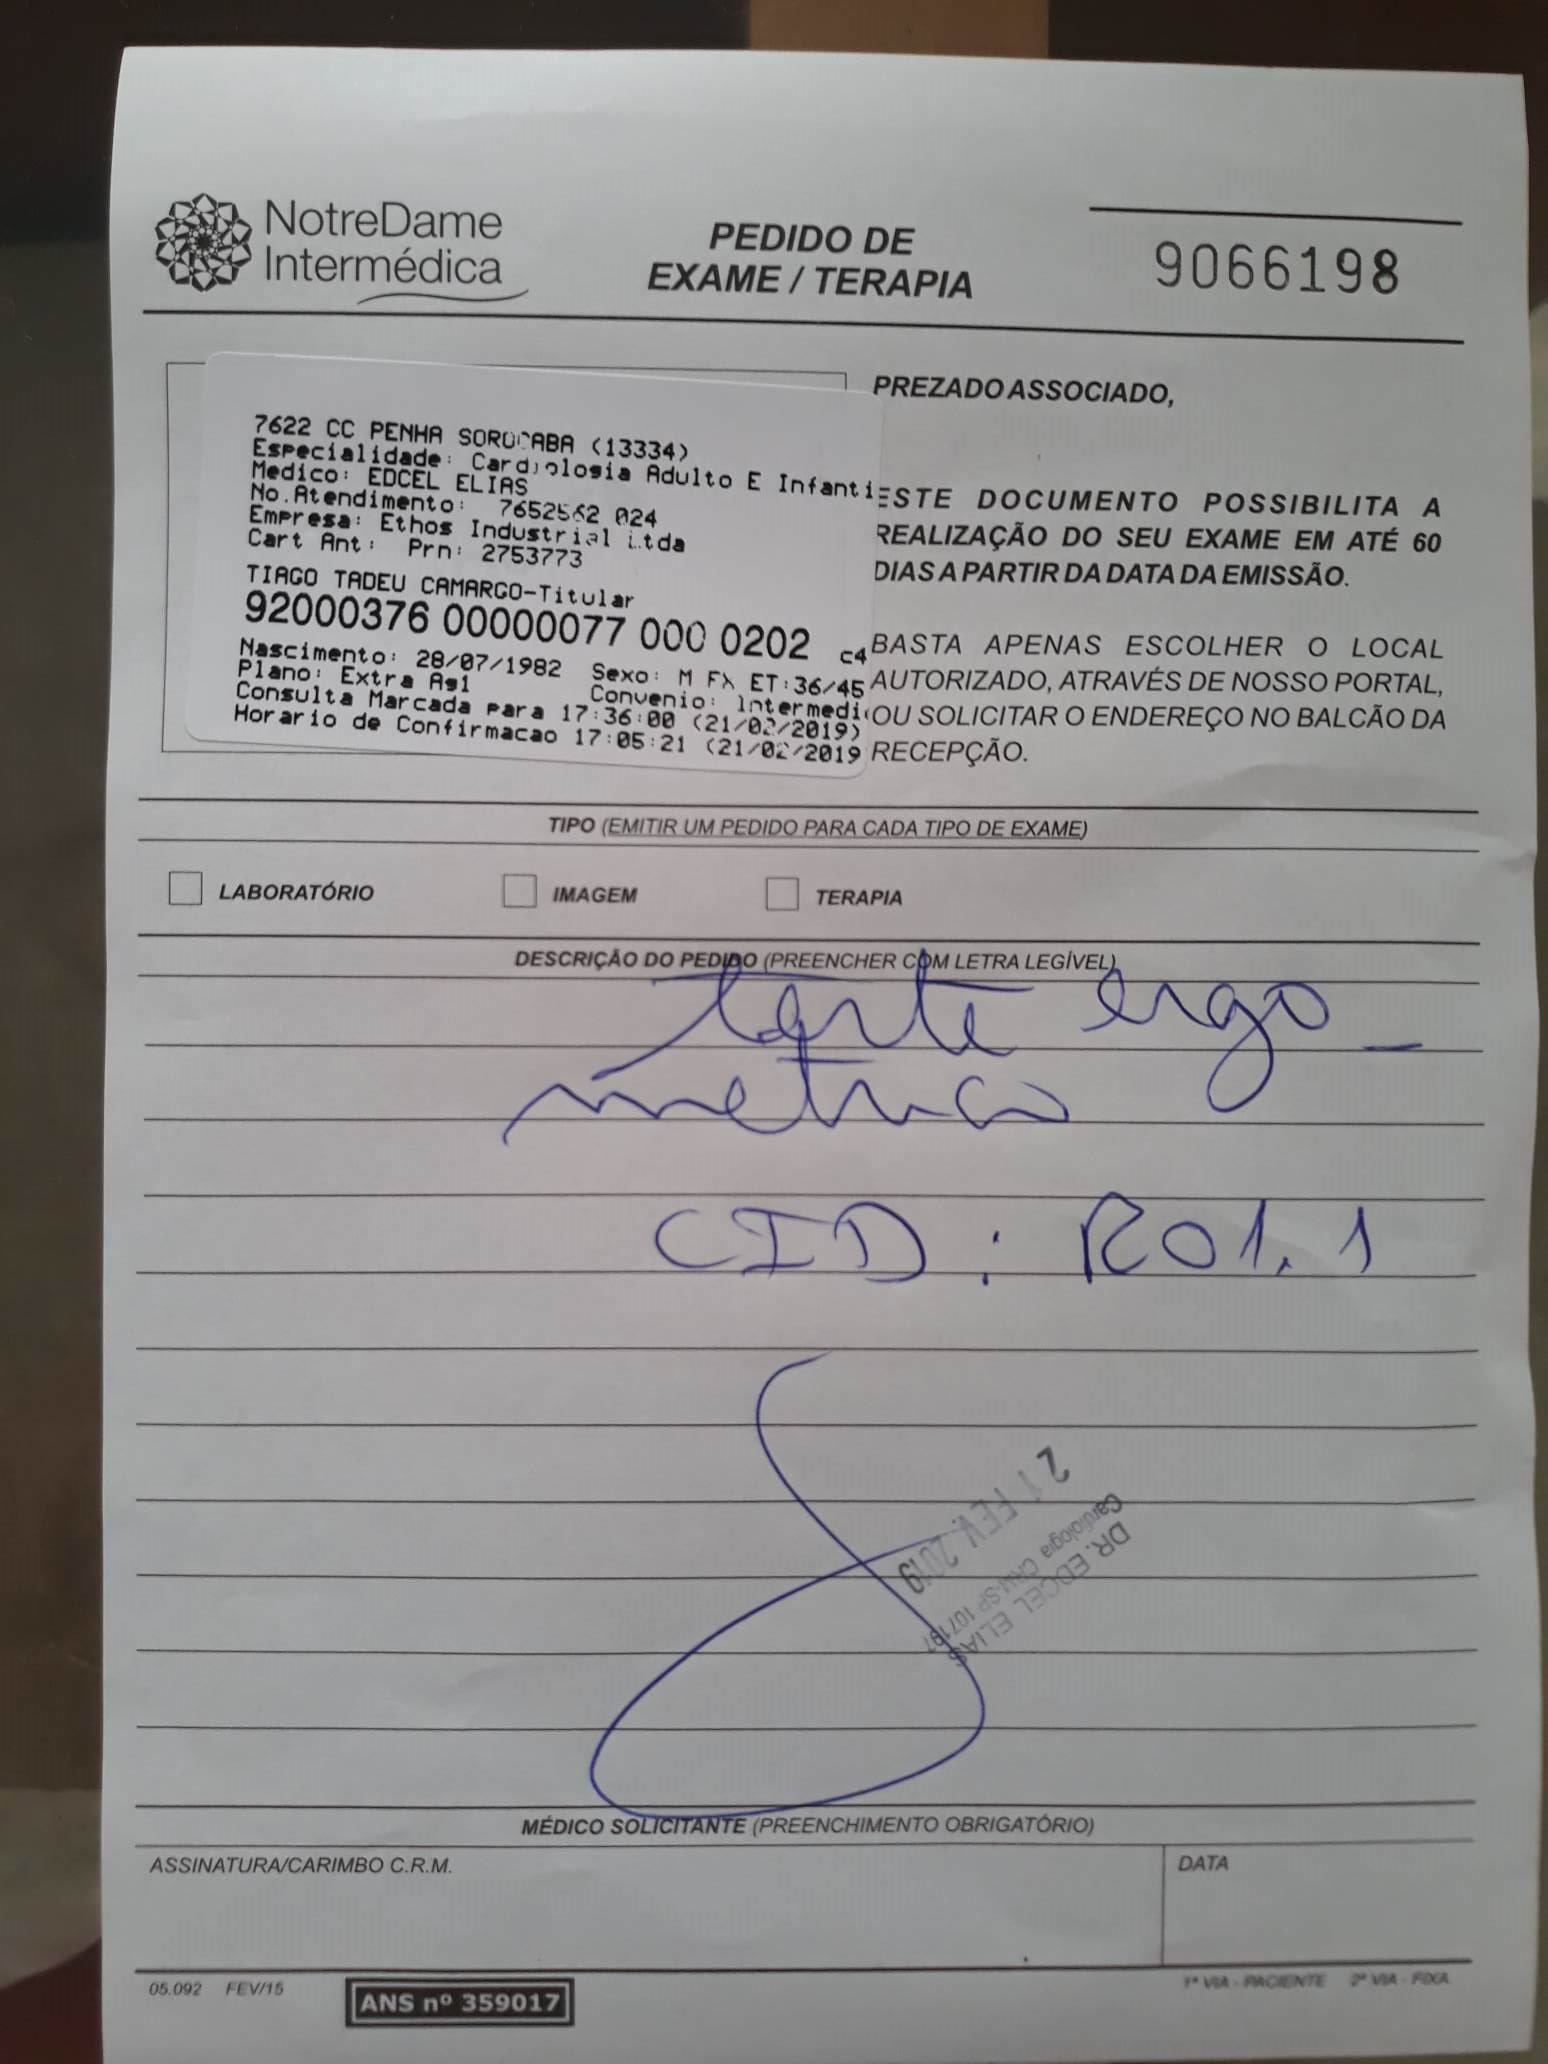 NotreDame
Intermédica
PEDIDO DE
EXAME / TERAPIA
9066198
7622 CC PENHA SOROCABA (13334)
Especialidade: Cardiologia Adulto E Infanti
Medico: EDCEL ELIAS
No.Atendimento: 7652562 024
Empresa: Ethos Industrial Ltda
Cart Ant: Prn: 2753773
TIAGO TADEU CAMARGO-Titular
92000376 00000077 000 0202 c4
Nascimento: 28/07/1982 Sexo: M FX ET:36/45
Plano: Extra Ag1 Convenio: Intermedi
Consulta Marcada para 17:36:00 (21/02/2019)
Horario de Confirmacao 17:05:21 (21/02/2019
PREZADO ASSOCIADO,
ESTE DOCUMENTO POSSIBILITA A
REALIZAÇÃO DO SEU EXAME EM ATÉ 60
DIAS A PARTIR DA DATA DA EMISSÃO.
BASTA APENAS ESCOLHER O LOCAL
AUTORIZADO, ATRAVÉS DE NOSSO PORTAL,
OU SOLICITAR O ENDEREÇO NO BALCÃO DA
RECEPÇÃO.
TIPO (EMITIR UM PEDIDO PARA CADA TIPO DE EXAME)
LABORATÓRIO IMAGEM TERAPIA
DESCRIÇÃO DO PEDIDO (PREENCHER COM LETRA LEGÍVEL)
teste ergo_
metrico
CID : R01.1
21 FEV. 2019
DR. EDCEL ELIAS
Cardiologia CRM-SP 107197
MÉDICO SOLICITANTE (PREENCHIMENTO OBRIGATÓRIO)
ASSINATURA/CARIMBO C.R.M. DATA
05.092 FEV/15 ANS nº 359017 1ª VIA - PACIENTE 2ª VIA - FIXA